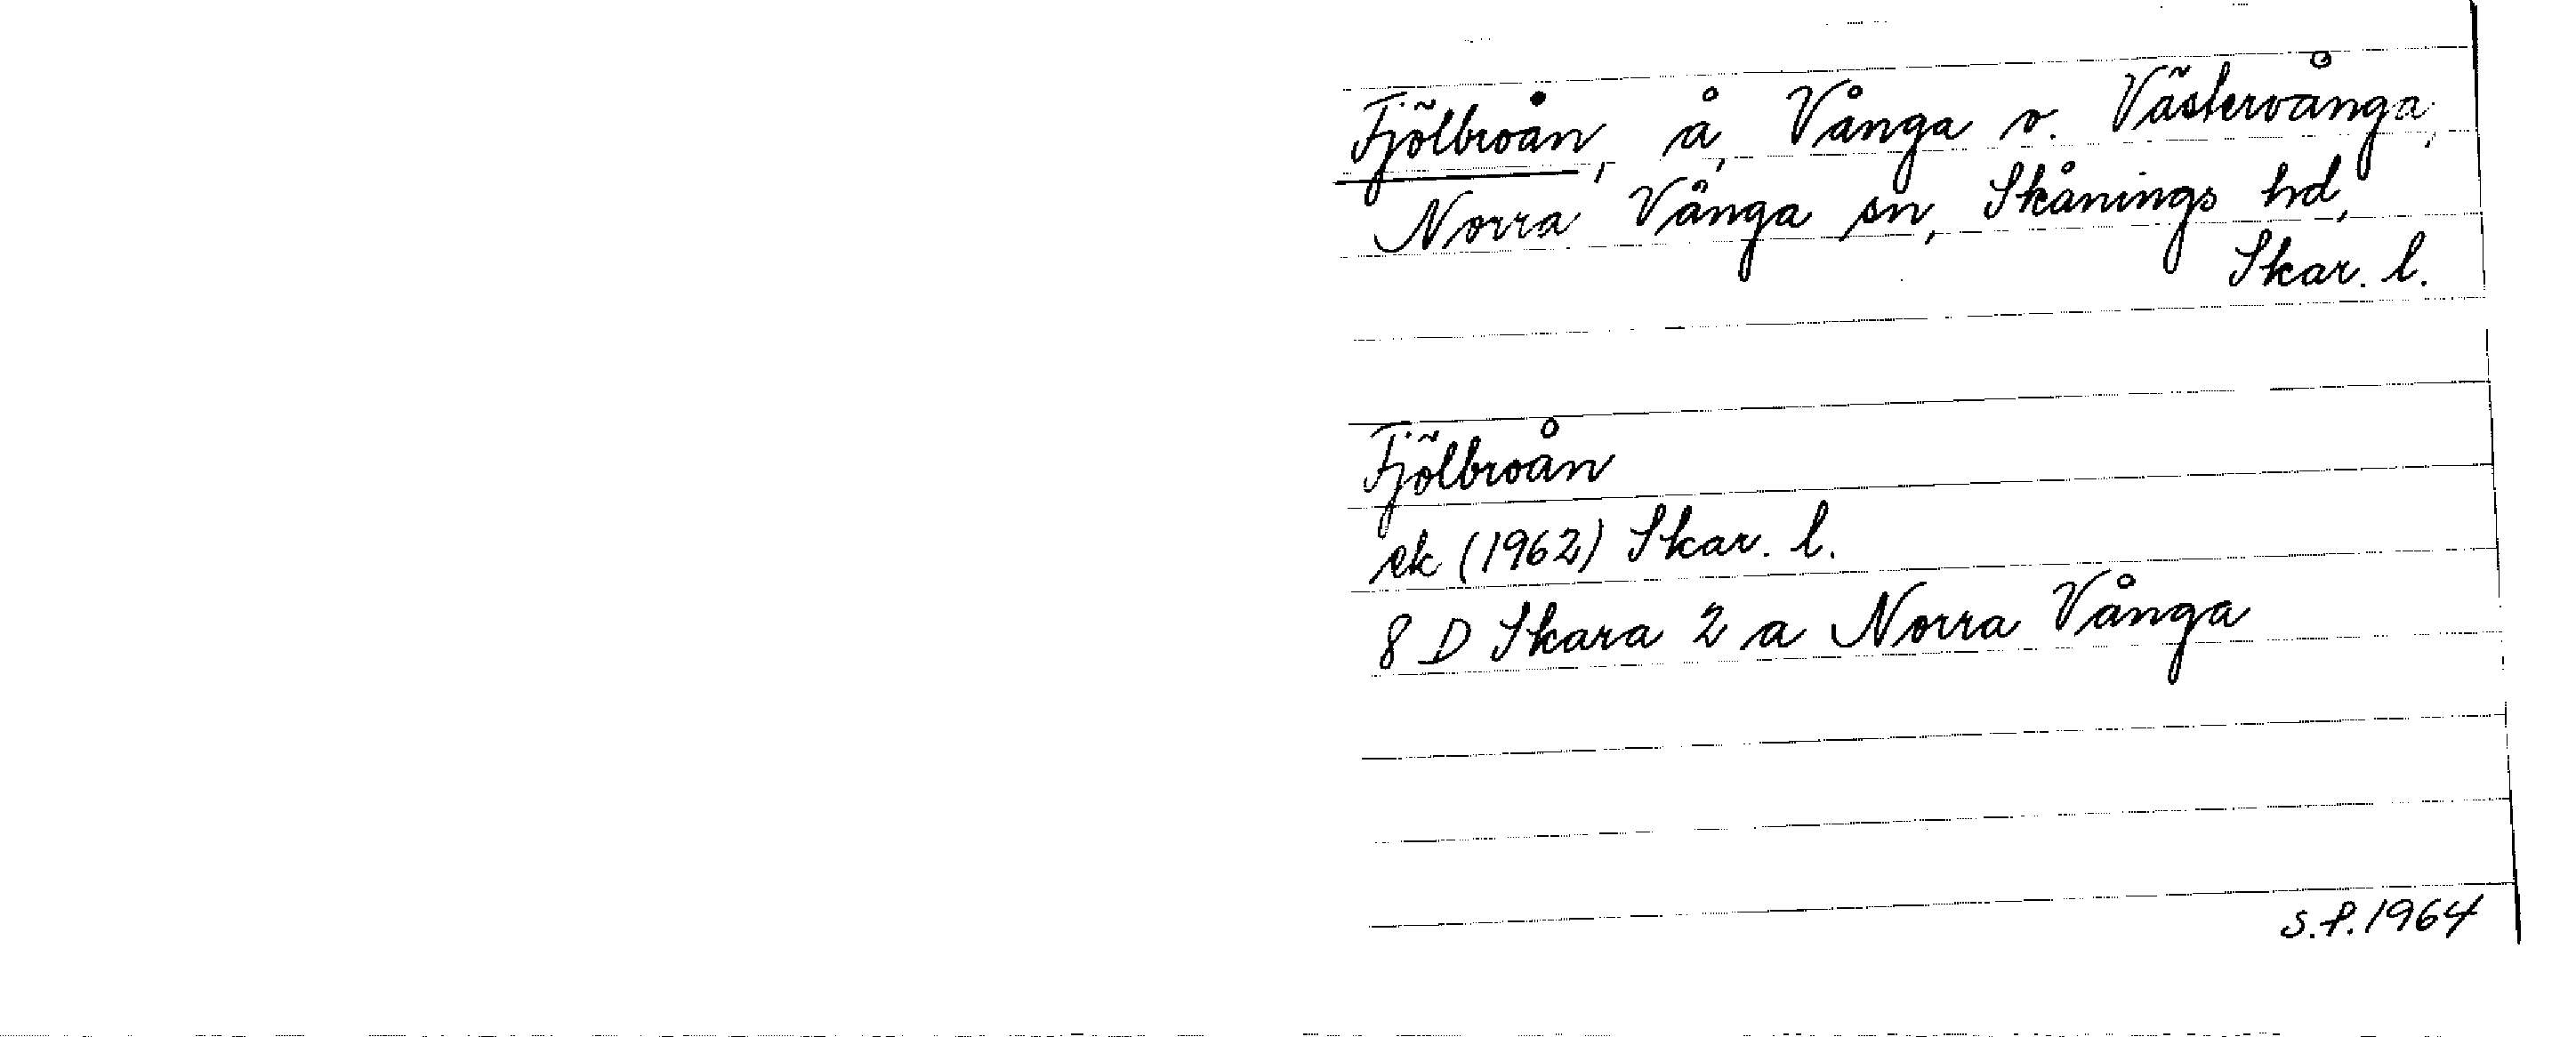 Fjölbroån, å, Vånga o. Västervånga,
Norra Vånga sn, Skånings hd,
Skar. l.
Fjölbroån
ek (1962) Skar. l.
8 D Skara 2 a Norra Vånga
S.P. 1964